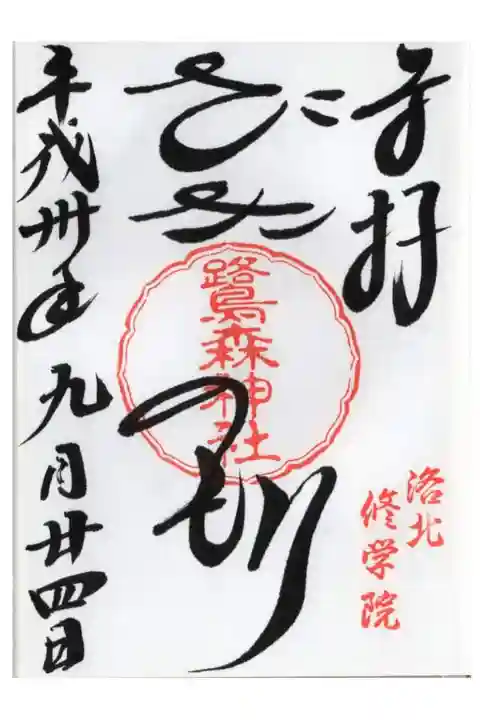 奉拝
洛北
修学院
さぎのもり
鷺森神社
平成卅年九月廿四日